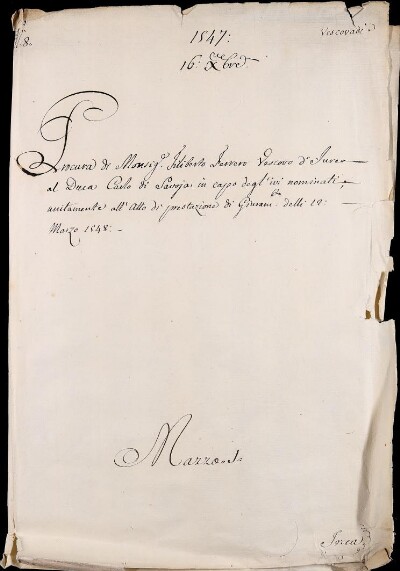 8.
1547:
Vescovadi
16: Xbre
Procura di Monsigr. Filiberto Ferrero Vescovo d'Ivrea
al Duca Carlo di Savoja in cappo degl'ivi nominati,
unitamente all'Atto di prestazione di Giuramto. delli 12:
Marzo 1548: -
Mazzo 1.
Ivrea